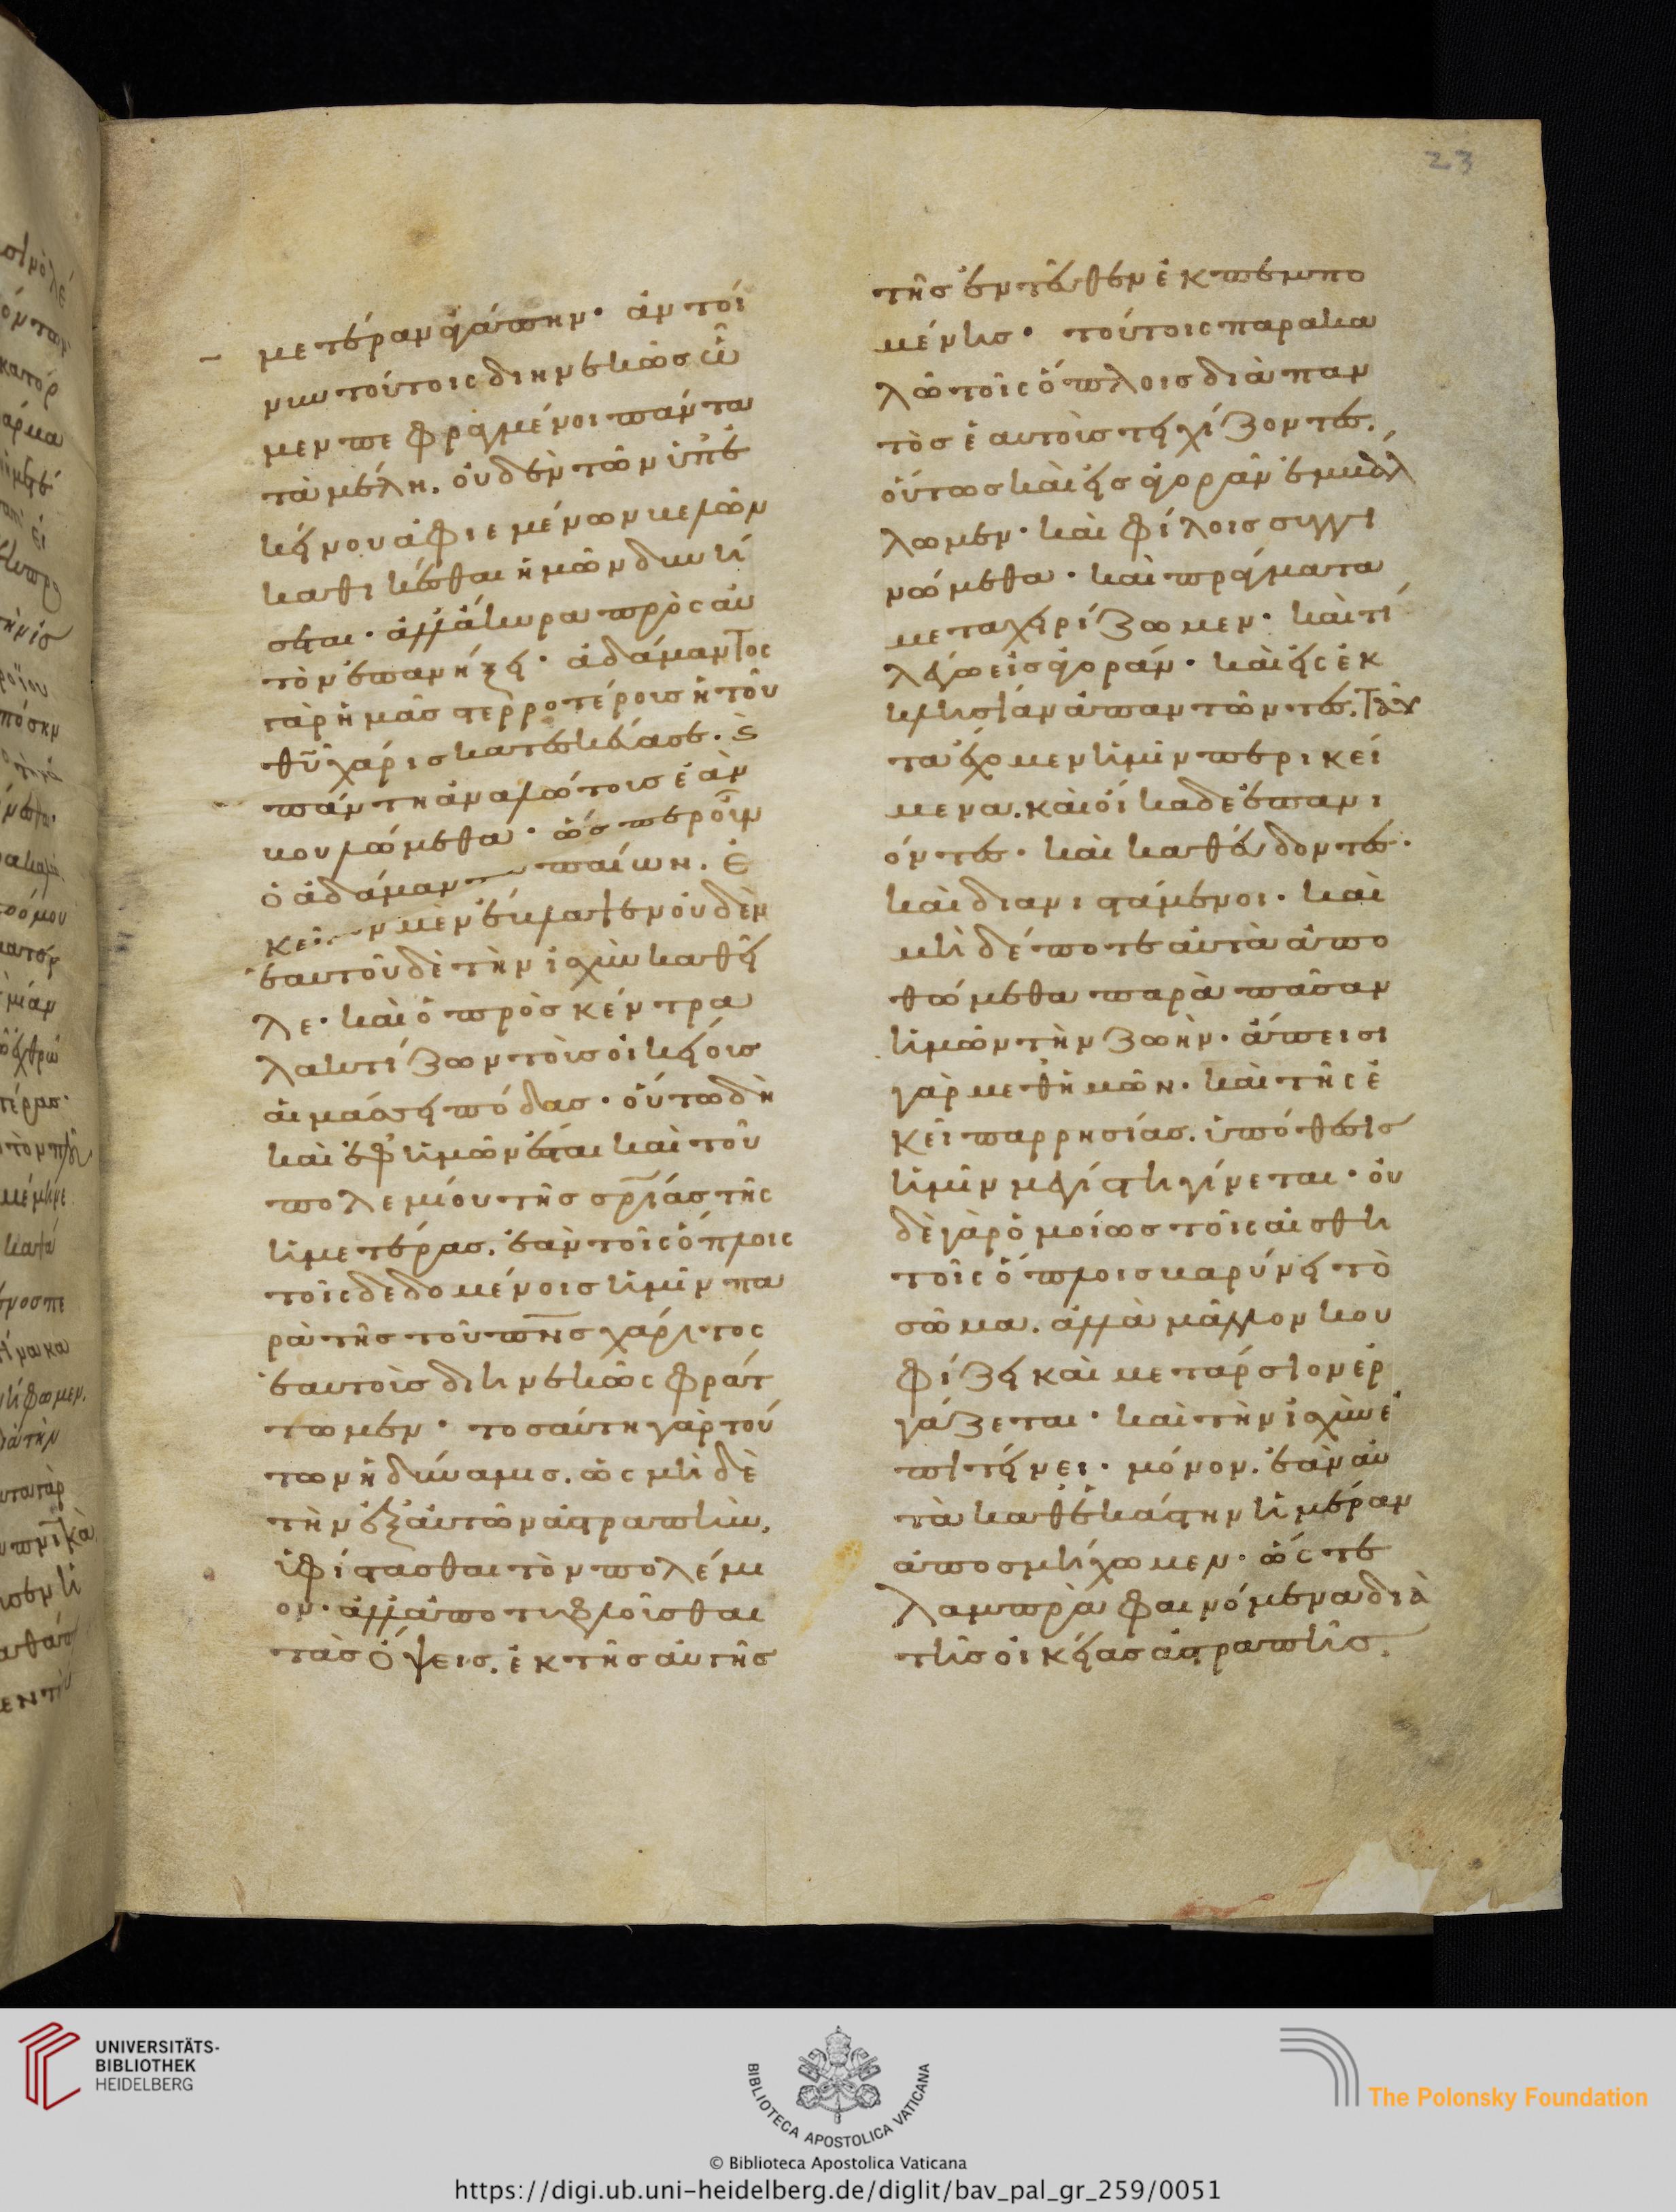 23
μετέραν ἀγάπην· ἂν τοί
νυν τούτοις διηνεκῶς ὦ
μεν πεφραγμένοι πάντα
τὰ μέλη. οὐδὲν τῶν ὑπ' ἐ
κείνου ἀφιεμένων βελῶν
καθικέσθαι ἡμῶν δυνή
σεται· ἀλλ' ἄκυρα πρὸς αὐ
τὸν ἐπανήξει· ἀδάμαντος
γὰρ ἡμᾶς στερροτέρους ἡ τοῦ
θυ χάρις κατεσκεύασε. ϗ
πάντη ἀναλώτους ἐὰν
βουλώμεθα· ὥσπερ οὖν
ὁ ἀδάμαντα παίων. ἐ
κεῖνον μὲν ἔβλαψεν οὐδὲν
ἑαυτοῦ δὲ τὴν ἰσχὺν καθεῖ
λε· καὶ ὁ πρὸς κέντρα
λακτίζων τοὺς οἰκείους
αἱμάσσει πόδας· οὕτω δὴ
καὶ ἐφ' ἡμῶν ἔσται καὶ τοῦ
πολεμίου τῆς σρίας τῆς
ἡμετέρας. ἐὰν τοῖς ὅπλοις
τοῖς δεδομένοις ἡμῖν πα
ρὰ τῆς τοῦ πνς χάριτος
ἑαυτοὺς διηνεκῶς φράτ
τωμεν· τοσαύτη γὰρ τού
των ἡ δύναμις. ὡς μὴ δὲ
τὴν ἐξ αὐτῶν ἀστραπὴν.
ὑφίστασθαι τὸν πολέμι
ον· ἀλλ' ἀποτυφλοῦσθαι
τὰς ὄψεις. ἐκ τῆς αὐτῆς
τῆς ἐντεῦθεν ἐκπεμπο
μένης· τούτοις παρακα
λῶ τοῖς ὅπλοις διὰ παν
τὸς ἑαυτοὺς τειχίζοντες.
οὕτως καὶ εἰς ἀγορὰν ἐμβάλ
λωμεν· καὶ φίλοις συγγι
νώμεθα· καὶ πράγματα
μεταχειρίζωμεν· καὶ τί
λέγω εἰς ἀγοράν· καὶ εἰς ἐκ
κλησίαν ἀπαντῶντες. ταῦ
τα ἔχομεν ἡμῖν περικεί
μενα. καὶ οἴκαδε ἐπανι
όντες· καὶ καθεύδοντες·
καὶ διανιστάμενοι· καὶ
μὴ δέποτε αὐτὰ ἀπο
θώμεθα παρὰ πᾶσαν
ἡμῶν τὴν ζωὴν· ἄπεισι
γὰρ μεθ' ἡμῶν· καὶ τῆς ἐ
κεῖ παρρησίας. ὑπόθεσις
ἡμῖν μεγίστη γίνεται· οὐ
δὲ γὰρ ὁμοίως τοῖς αἰσθη
τοῖς ὅπλοις βαρύνει τὸ
σῶμα. ἀλλὰ μᾶλλον κου
φίζει καὶ μετάρσιον ἐρ
γάζεται· καὶ τὴν ἰσχὺν ἐ
πιτείνει· μόνον. ἐὰν αὐ
τὰ καθ' ἑκάστην ἡμέραν
ἀποσμήχωμεν· ὥστε
λαμπρὰ φαινόμενα διὰ
τῆς οἰκείας ἀστραπῆς.
UNIVERSITÄTS-
BIBLIOTHEK
HEIDELBERG
BIBLIOTECA APOSTOLICA VATICANA
The Polonsky Foundation
© Biblioteca Apostolica Vaticana
https://digi.ub.uni-heidelberg.de/diglit/bav_pal_gr_259/0051